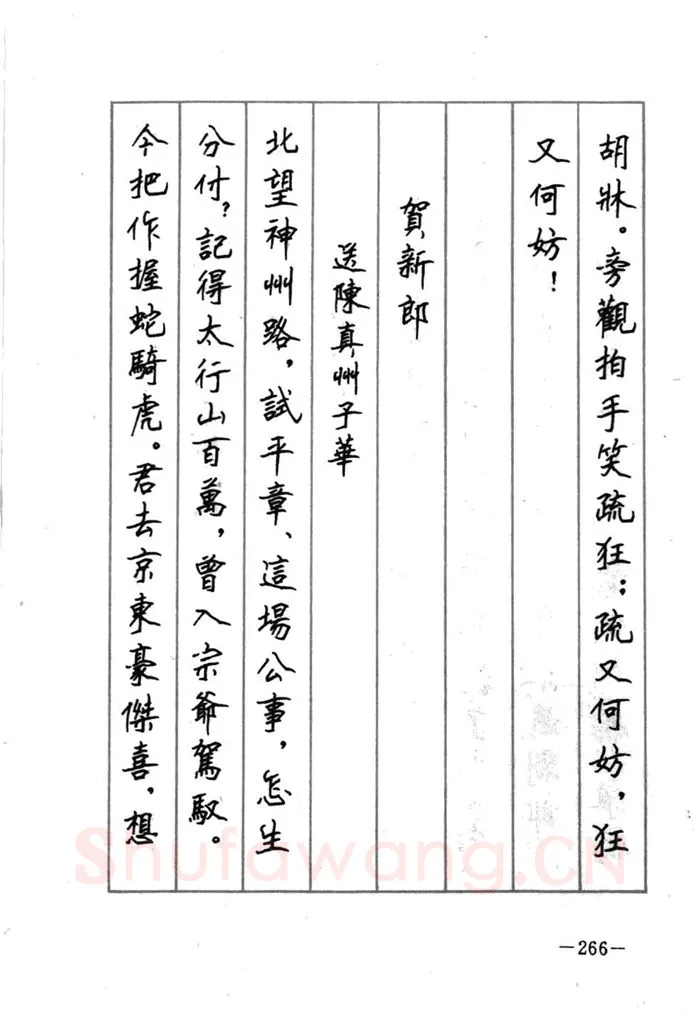 胡牀。旁觀拍手笑疏狂；疏又何妨，狂
又何妨！
賀新郎
送陳真州子華
北望神州路，試平章、這場公事，怎生
分付？記得太行山百萬，曾入宗爺駕馭。
今把作握蛇騎虎。君去京東豪傑喜，想
Shufawang.CN
—266—